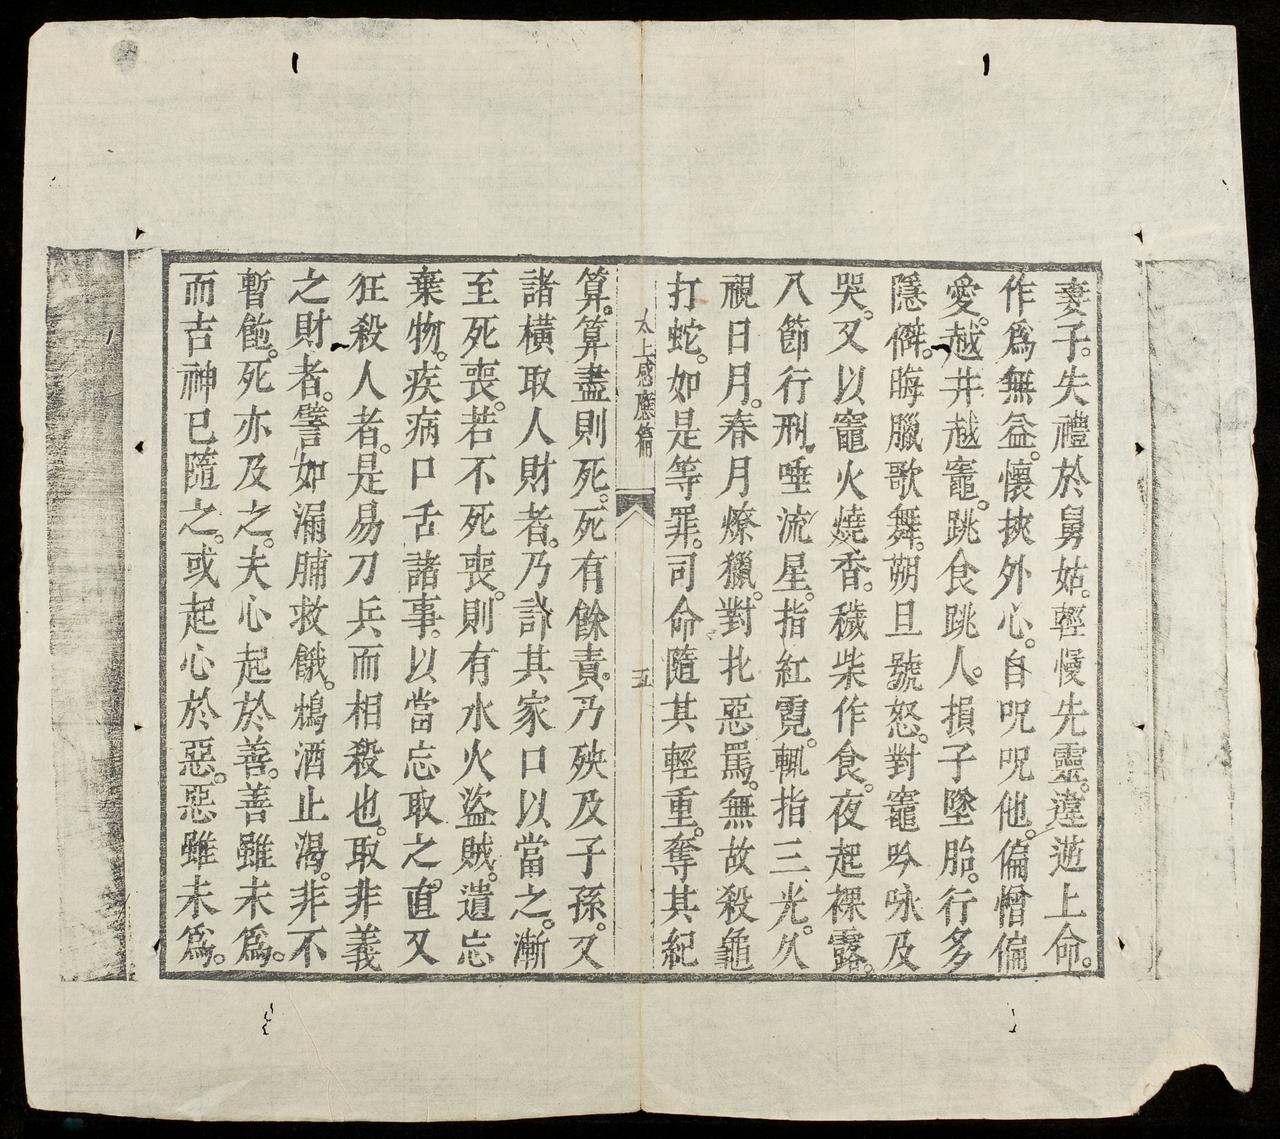 妻子。失禮於舅姑。輕慢先靈。違逆上命。
作爲無益。懷挾外心。自呪呪他。偏憎偏
愛。越井越竈。跳食跳人。損子墜胎。行多
隱僻。晦臘歌舞。朔旦號怒。對竈吟咏及
哭。又以竈火燒香。穢柴作食。夜起裸露。
八節行刑。唾流星。指紅霓。輒指三光。久
視日月。春月燎獵。對北惡罵。無故殺龜
打蛇。如是等罪。司命隨其輕重。奪其紀
太上感應篇 五
算。算盡則死。死有餘責。乃殃及子孫。又
諸橫取人財者。乃計其家口以當之。漸
至死喪。若不死喪。則有水火盜賊。遺忘
棄物。疾病口舌諸事。以當忘取之。直又
狂殺人者。是易刀兵而相殺也。取非義
之財者。譬如漏脯救餓。鴆酒止渴。非不
暫飽。死亦及之。夫心起於善。善雖未爲。
而吉神已隨之。或起心於惡。惡雖未爲。